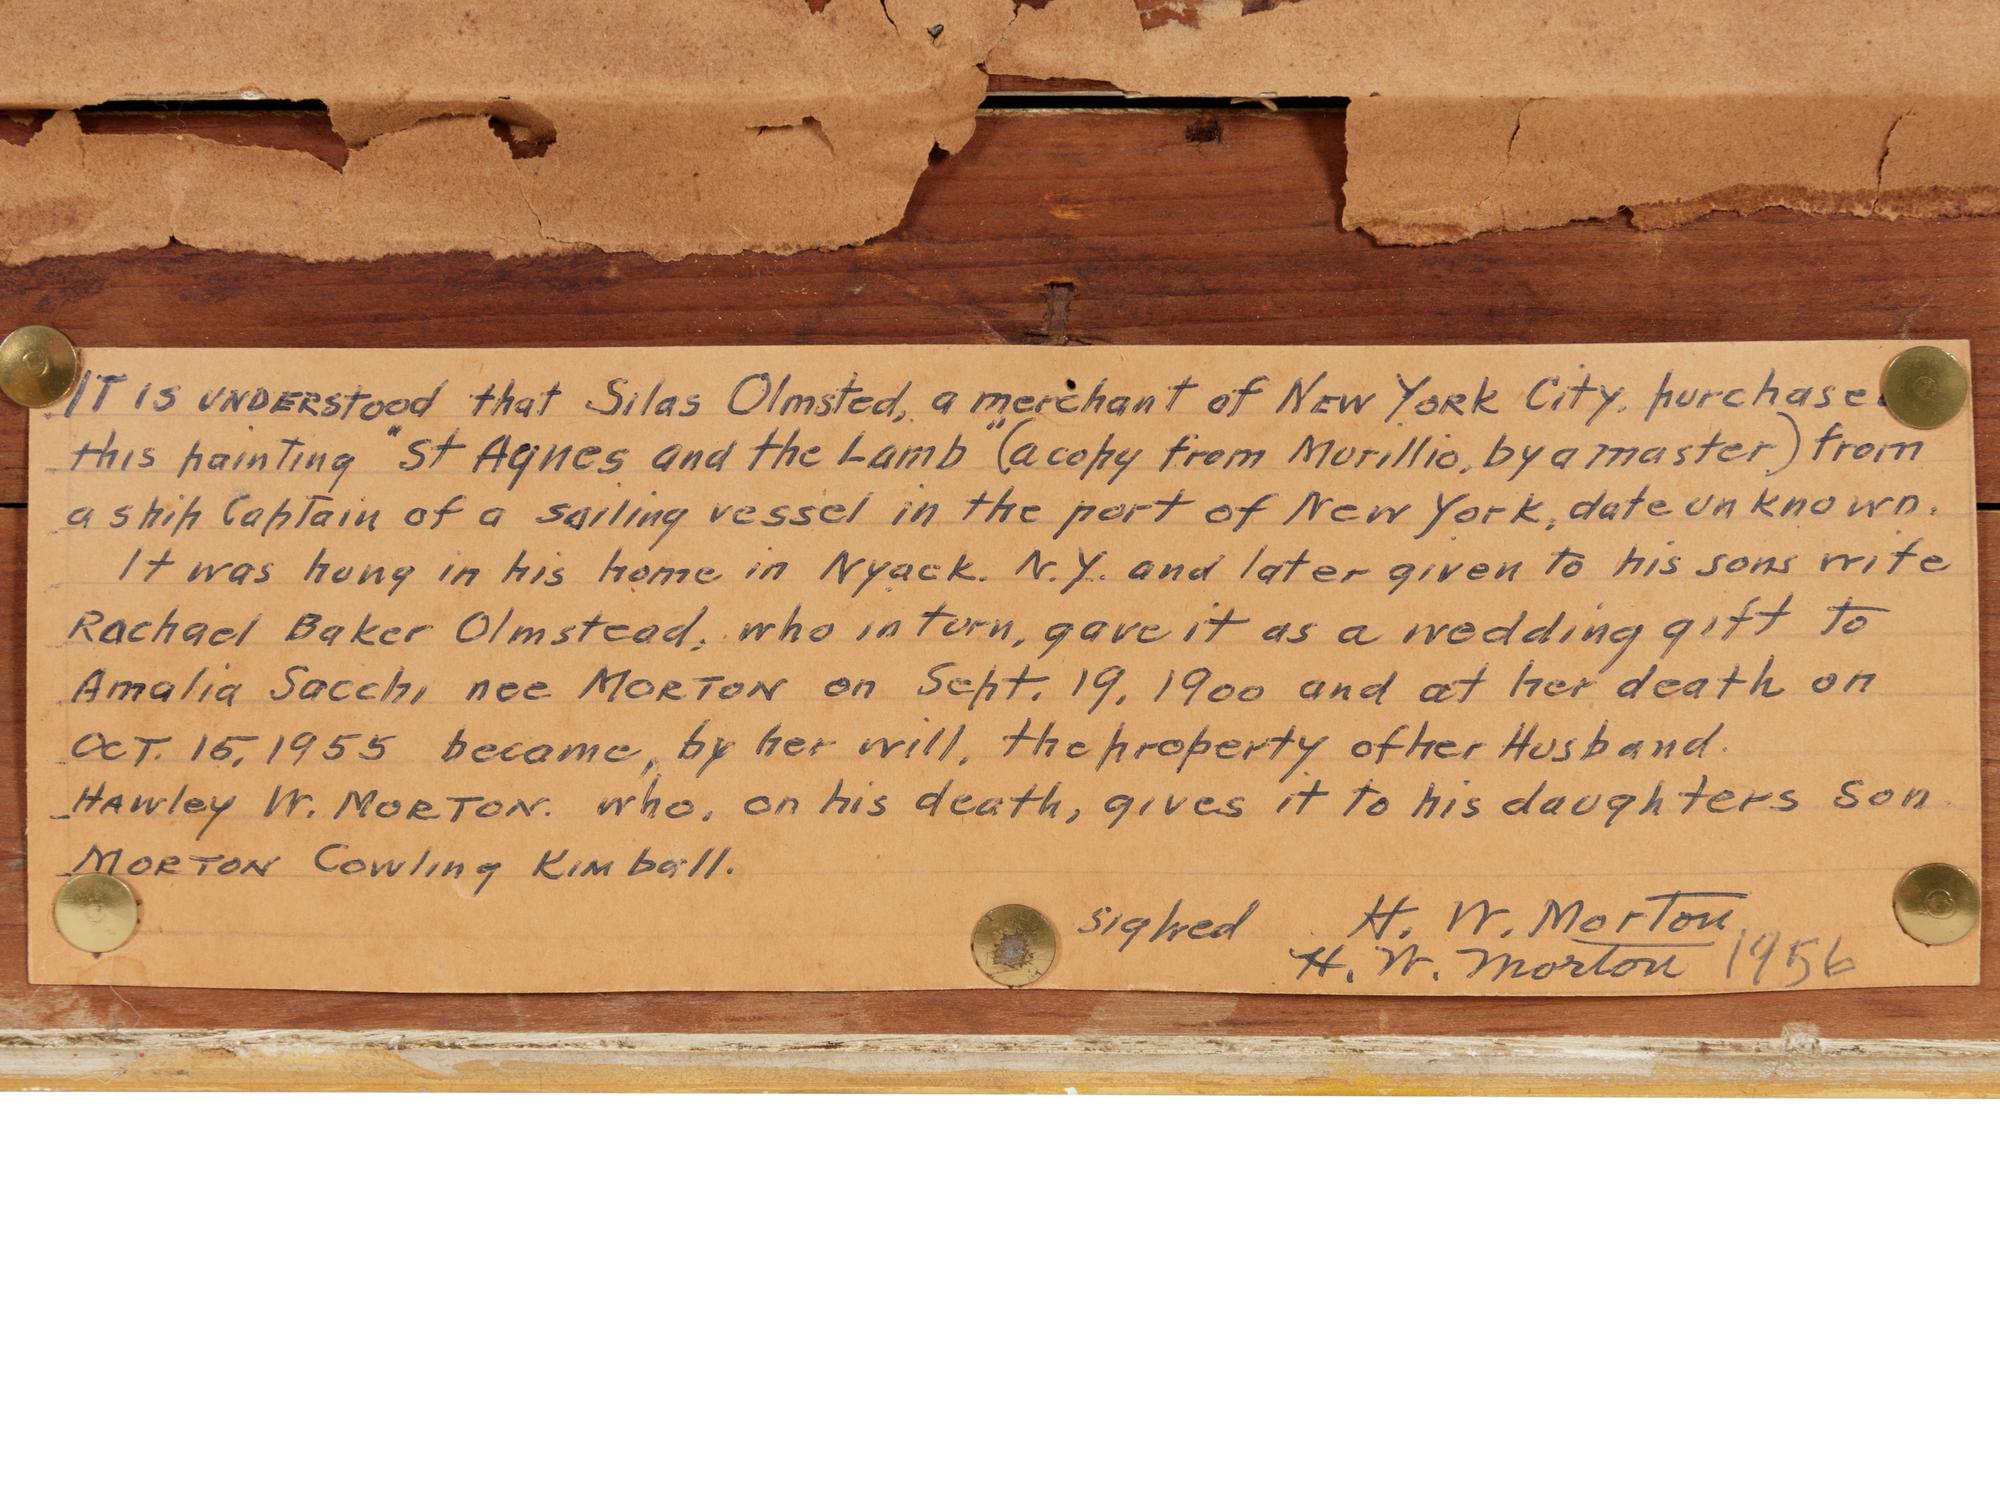 IT IS UNDERSTOOD that Silas Olmsted, a merchant of NEW YORK City, purchase
this painting "St Agnes and the Lamb" (a copy from Murillio, by a master) from
a ship Captain of a sailing vessel in the port of New York, date unknown.
It was hung in his home in Nyack. N.Y. and later given to his sons wife
Rachael Baker Olmstead, who in turn, gave it as a wedding gift to
Amalia Sacchi nee MORTON on Sept. 19, 1900 and at her death on
OCT. 15, 1955 became, by her will, the property of her Husband.
HAWley W. MORTON. who, on his death, gives it to his daughters son
MORTON Cowling KIMball.
signed H. W. Morton
H. W. Morton 1956